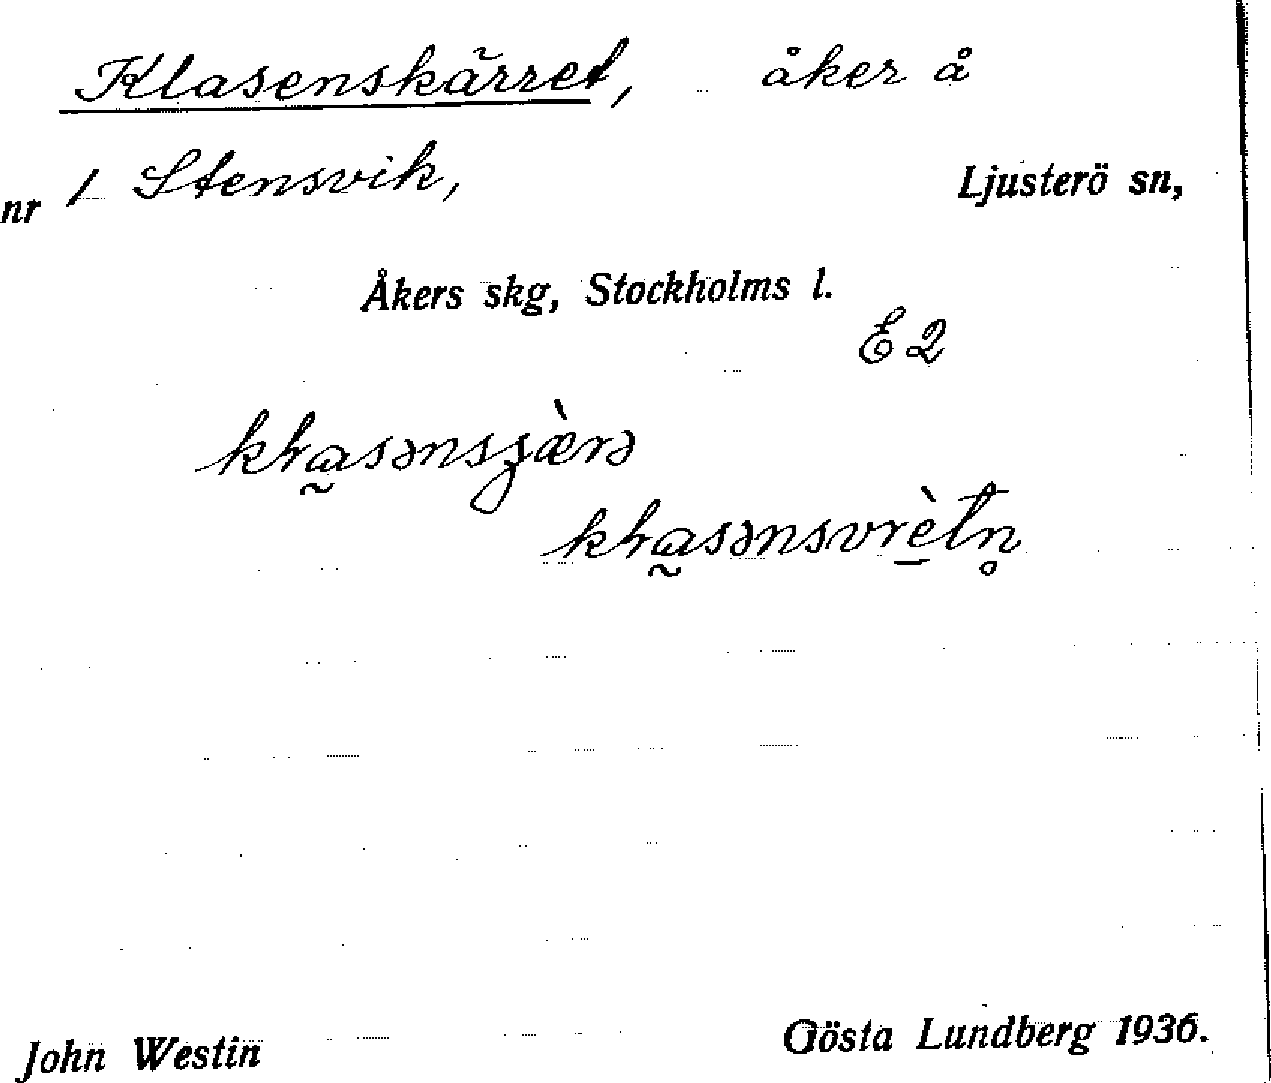 Klasenskärret, åker å
nr 1 Stensvik, Ljusterö sn,
Åkers skg, Stockholms l.
E 2
John Westin Gösta Lundberg 1936.